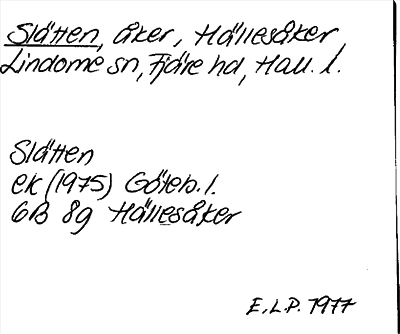 Slätten, åker, Hällesåker
Lindome sn, Fjäre hd, Hall. l.
Slätten
ek (1975) Göteb. l.
6B 8g Hällesåker
E.L.P. 1977